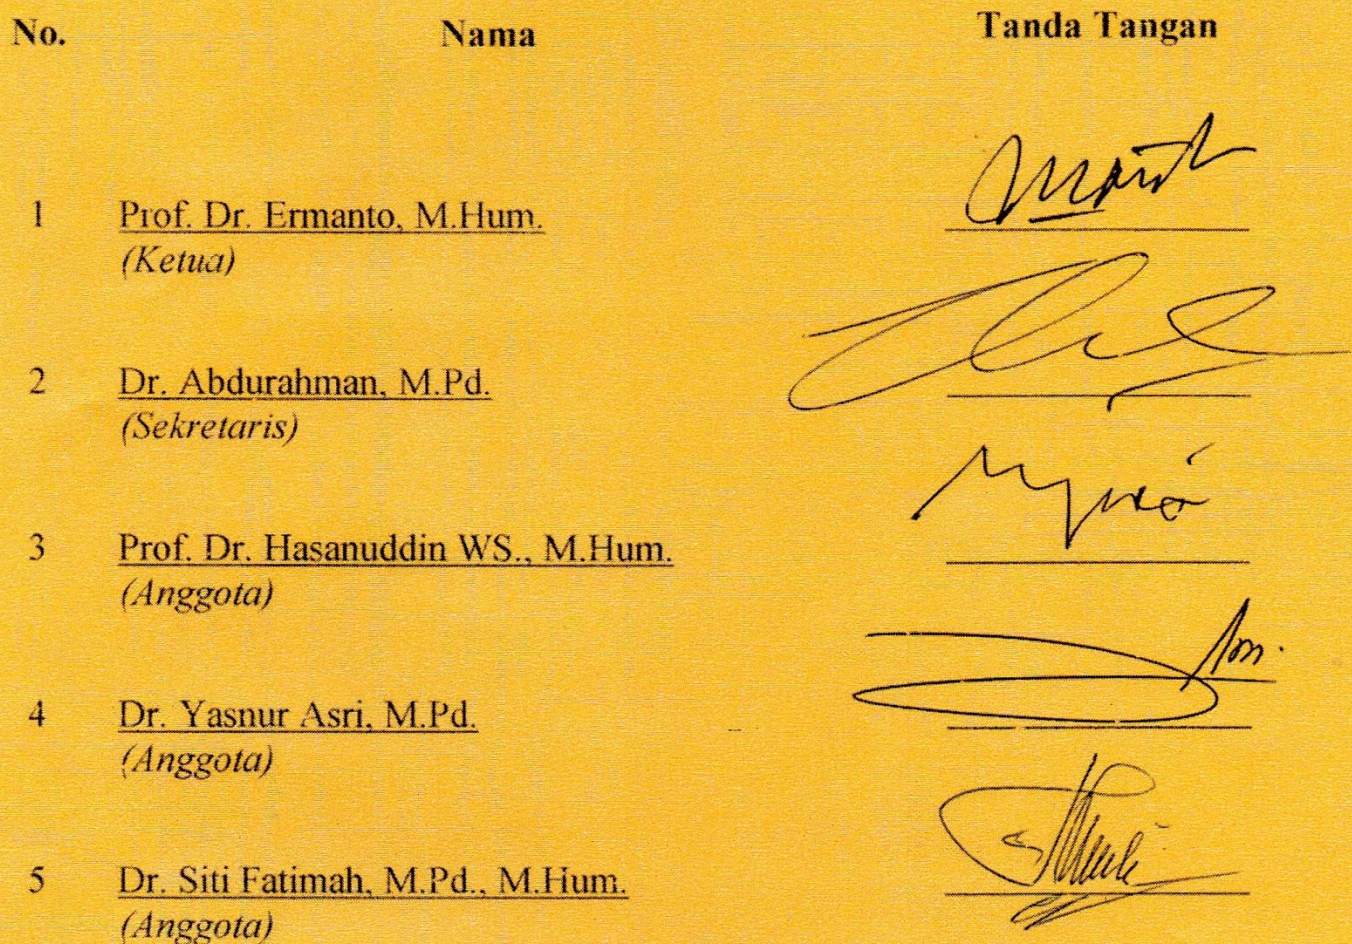 No. Nama Tanda Tangan
1 Prof. Dr. Ermanto, M.Hum.
(Ketua)
2 Dr. Abdurahman, M.Pd.
(Sekretaris)
3 Prof. Dr. Hasanuddin WS., M.Hum.
(Anggota)
4 Dr. Yasnur Asri, M.Pd.
(Anggota)
5 Dr. Siti Fatimah, M.Pd., M.Hum.
(Anggota)